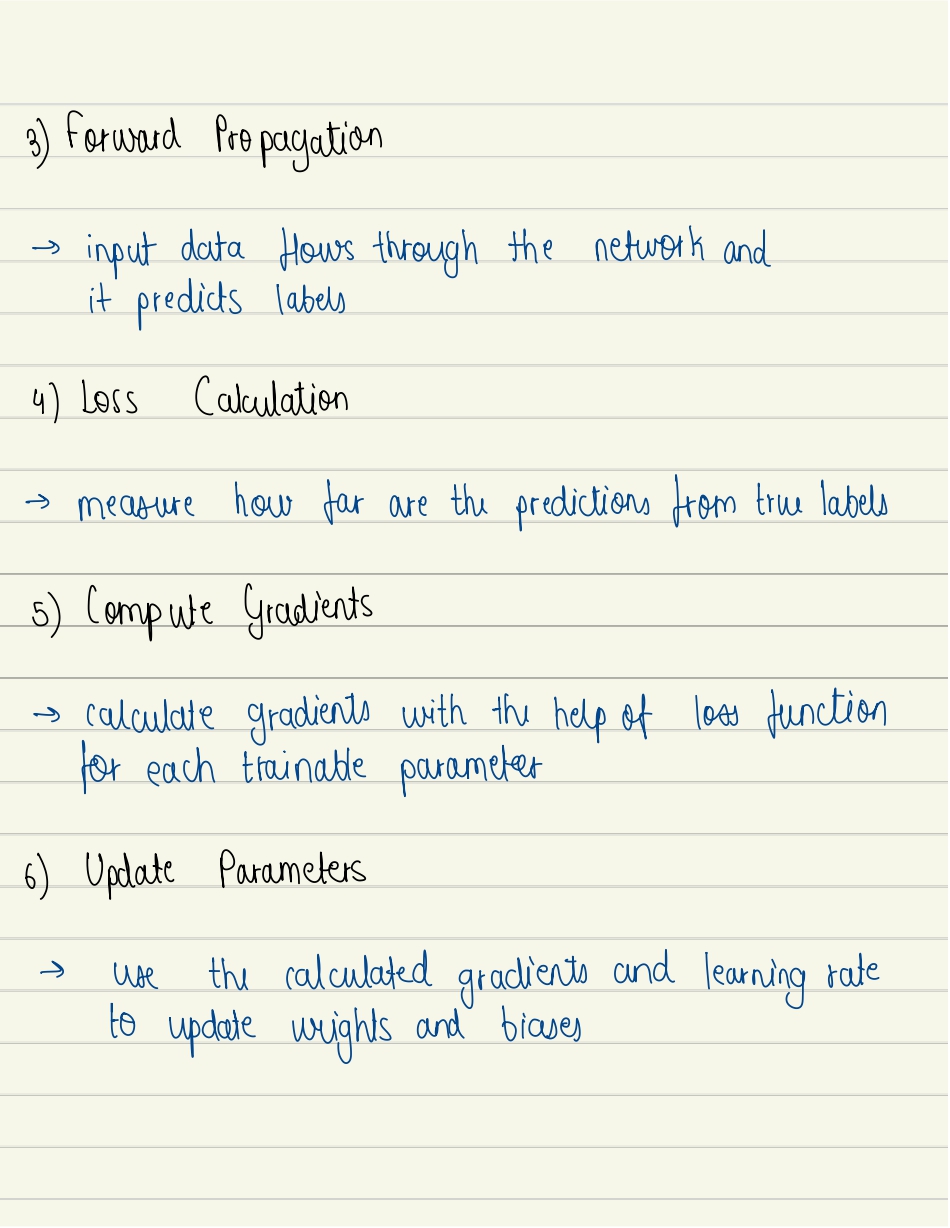 3) Forward Propagation
→ input data flows through the network and
it predicts labels
4) Loss Calculation
→ measure how far are the predictions from true labels
5) Compute Gradients
→ calculate gradients with the help of loss function
for each trainable parameter
6) Update Parameters
→ use the calculated gradients and learning rate
to update wrights and biases